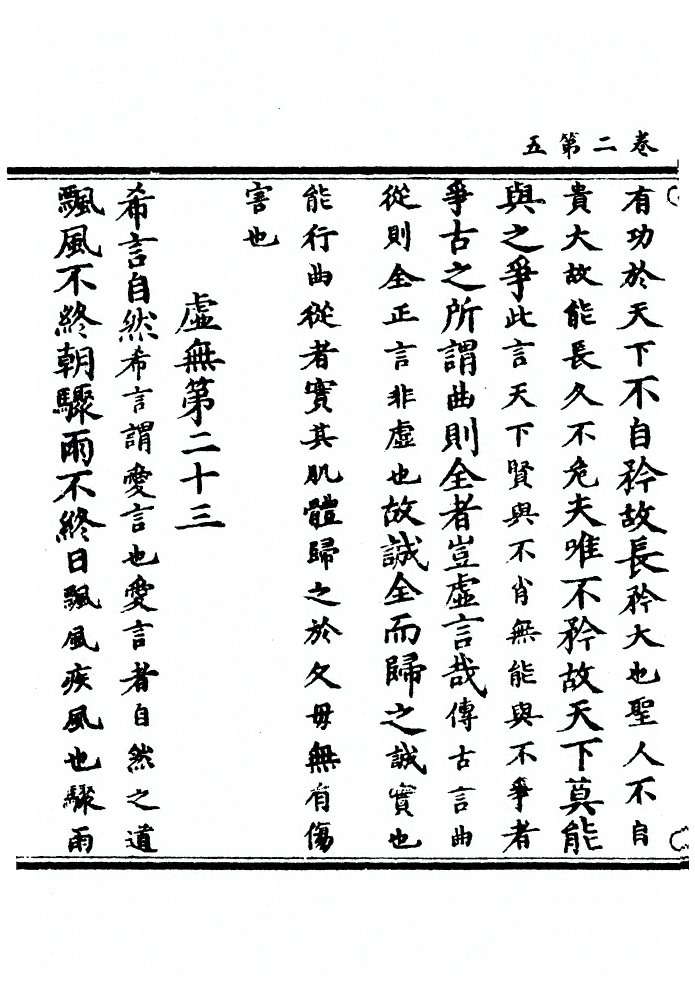 卷二第五
有功於天下不自矜故長矜大也聖人不自
貴大故能長久不危夫唯不矜故天下莫能
與之爭此言天下賢與不肖無能與不爭者
爭古之所謂曲則全者豈虛言哉傳古言曲
從則全正言非虛也故誠全而歸之誠實也
能行曲從者實其肌體歸之於父母無有傷
害也
虛無第二十三
希言自然希言謂愛言也愛言者自然之道
飄風不終朝驟雨不終日飄風疾風也驟雨